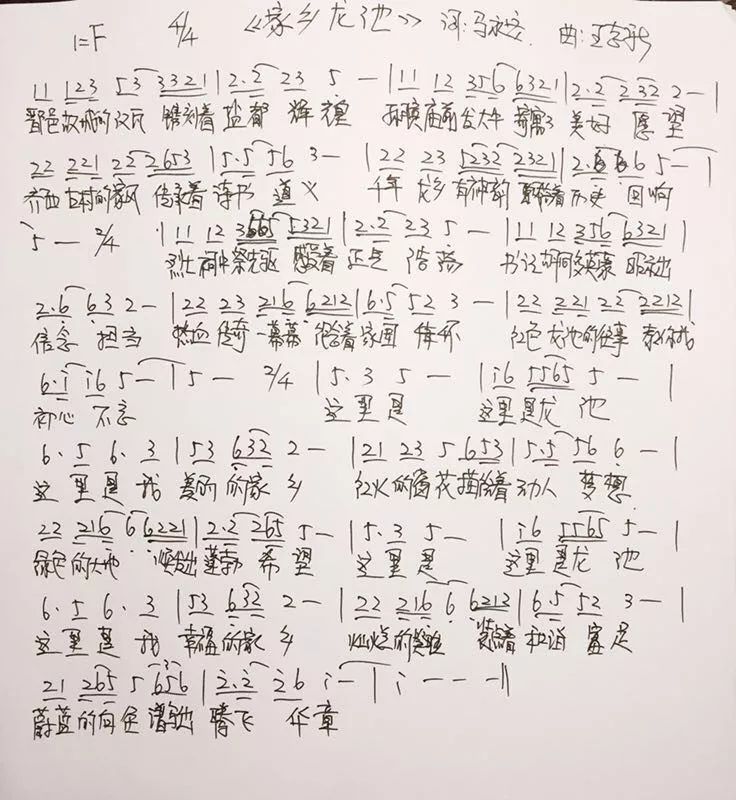 1=F 4/4 《家乡龙池》 词:马 曲:王
11 123 53 3321 | 2·2 23 5 — | 11 12 356 6321 | 2·2 232 2 — |
晋邑故城的汉瓦 镌刻着 盐都 辉煌 庙前 美好 愿望
22 221 22 2653 | 5·5 56 3 — | 22 23 5232 2321 | 2· 6 5 — |
古村的家风 传承着 诗书 道义 千年 龙乡 有神韵 着历史 回响
5 — 2/4 | 11 12 3 5321 | 2·2 23 5 — | 11 12 356 6321 |
祠中祭先驱 着 正气 浩荡 书记胡同
2·6 63 2 — | 22 23 216 6212 | 6·5 52 3 — | 22 221 22 2212 |
信念 担当 热血传奇 一幕幕 着家国 情怀 红色龙池的往事
6·i i6 5 — | 5 — 2/4 | 5·3 5 — | i6 5565 5 — |
初心 不忘 这里是 这里是龙 池
6·5 6·3 | 53 632 2 — | 21 23 5 653 | 5·5 56 6 — |
这里是 我 美丽的家 乡 红火的 花描绘着 动人 梦想
22 216 6 6221 | 2·2 265 5 — | 5·3 5 — | i6 5565 5 — |
绿色的大地 焕发出 蓬勃 希望 这里是 这里是龙 池
6·5 6·3 | 53 632 2 — | 22 216 6 6212 | 6·5 52 3 — |
这里是 我 幸福的家 乡 灿烂的 着 和谐 富足
21 265 5 656 | 2·2 26 i — | i — — — ‖
蔚蓝的 谱写出 腾飞 华章